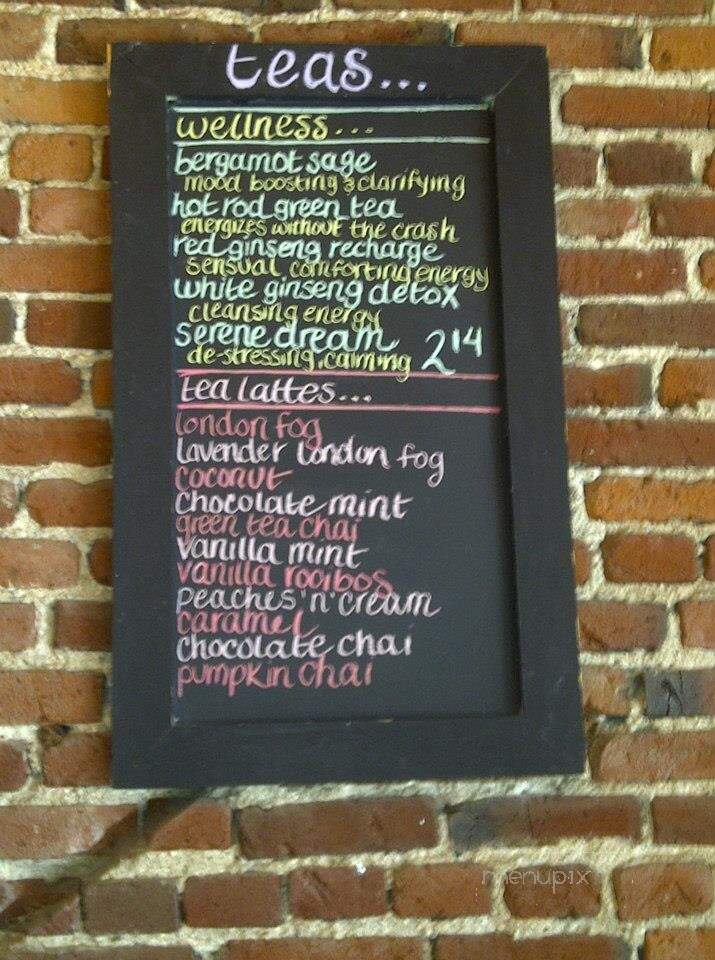 teas...
wellness...
bergamot sage
mood boosting & clarifying
hot rod green tea
energizes without the crash
red ginseng recharge
sensual, comforting energy
white ginseng detox
cleansing energy
serene dream 2 14
de-stressing, calming
tea lattes...
london fog
lavender london fog
coconut
chocolate mint
green tea chai
vanilla mint
vanilla rooibos
peaches 'n' cream
caramel
chocolate chai
pumpkin chai
menupix